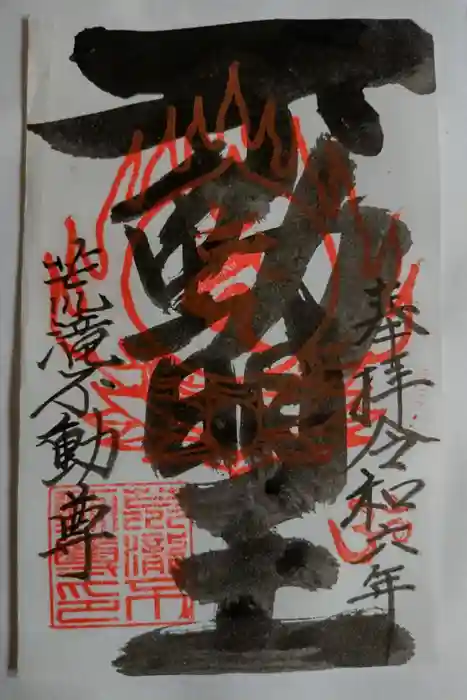 奉拝令和六年
不動明王
荒滝不動尊